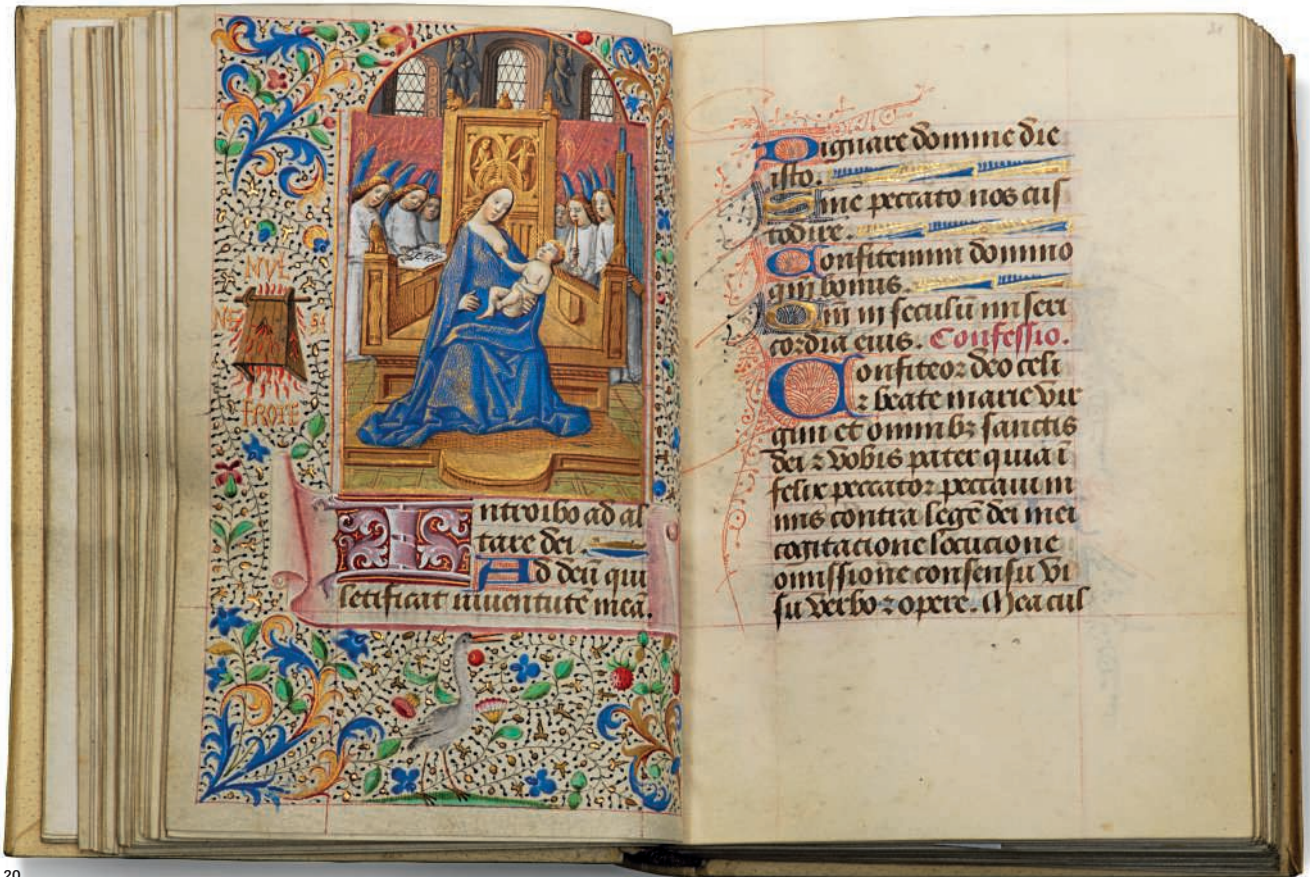 NVL
NE SI
FROTE
Introibo ad al
tare dei
Ad deū qui
letificat iuuentutē meā.
Dignare domine die
isto.
Sine peccato nos cus
todire.
Confitemini domino
qm̄ bonus.
Qm̄ in seculū miseri
cordia eius. Confessio.
Confiteor deo celi
⁊ beate marie vir
gini et omnibꝫ sanctis
dei ⁊ vobis pater quia ī
felix peccator peccaui ni
mis contra legē dei mei
cogitacione locucione
omissione consensu vi
su verbo ⁊ opere. Mea cul
20